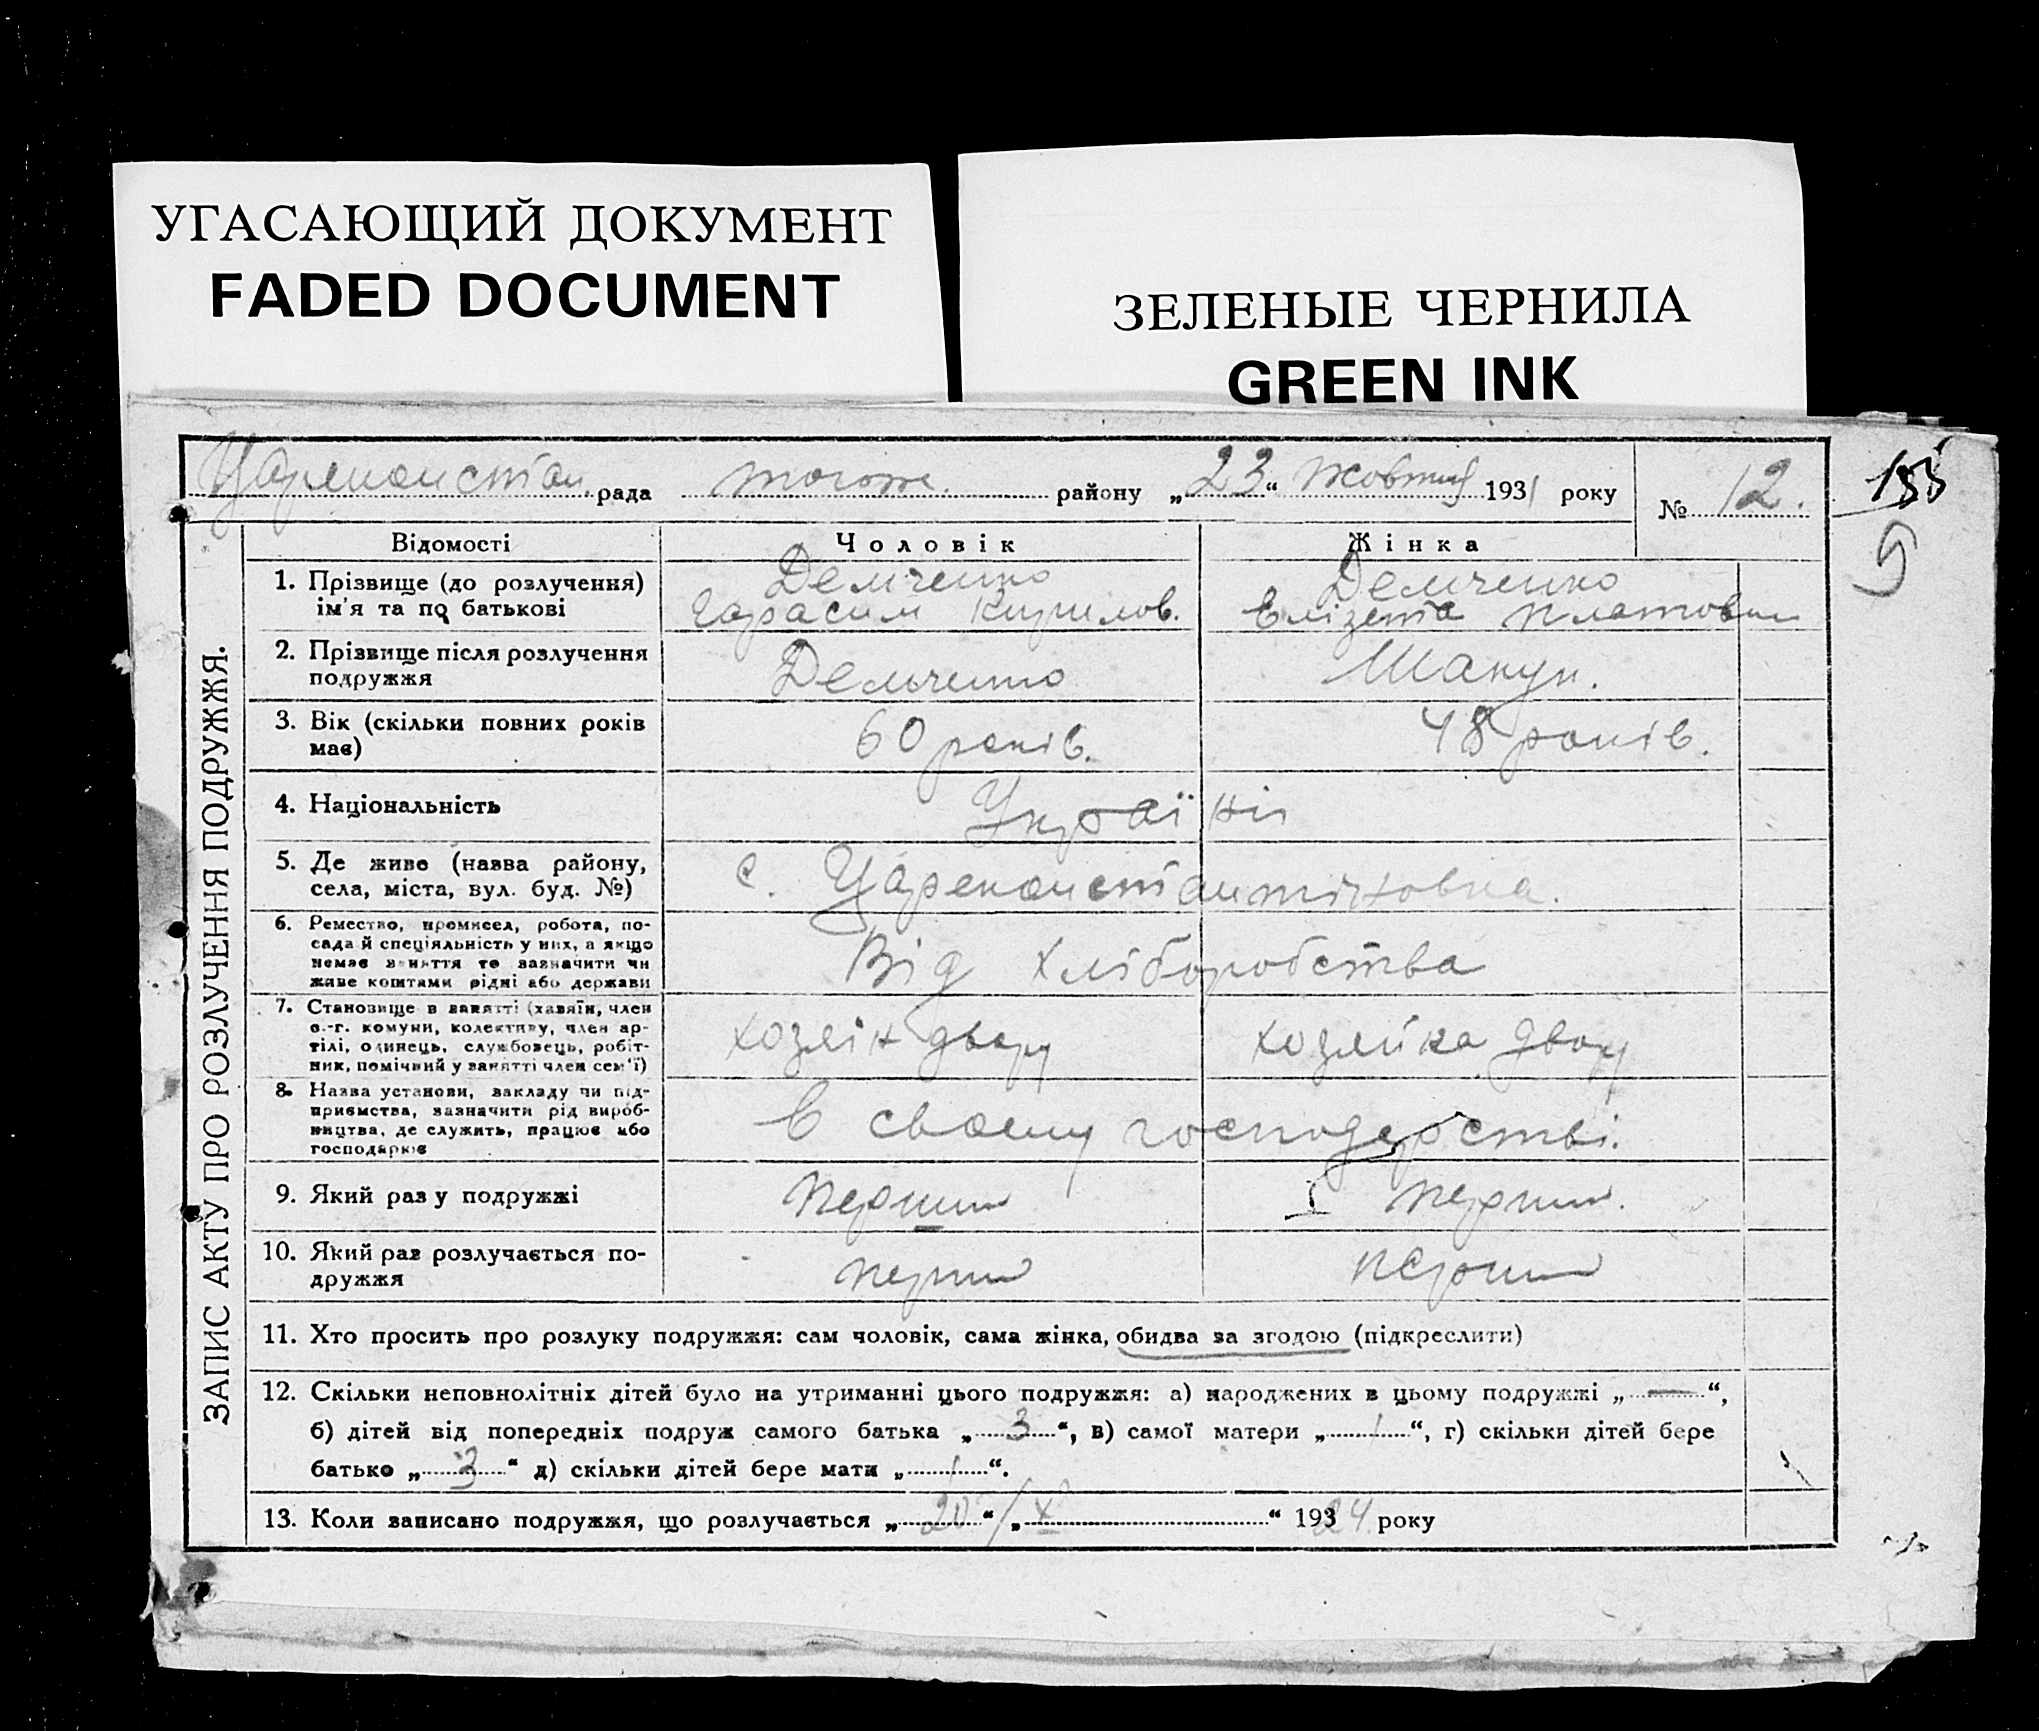 УГАСАЮЩИЙ ДОКУМЕНТ
FADED DOCUMENT
ЗЕЛЕНЫЕ ЧЕРНИЛА
GREEN INK
Царекконстан. рада тогож. району „23“ Жовтня 1931 року № 12.
155
ЗАПИС АКТУ ПРО РОЗЛУЧЕННЯ ПОДРУЖЖЯ.
Відомості Чоловік Жінка
1. Прізвище (до розлучення) ім'я та по батькові
Демченко Гарасим Кирилов.
Демченко Єлізета Платовн
2. Прізвище після розлучення подружжя
Демченко
Шакун.
3. Вік (скільки повних років має)
60 років.
48 років.
4. Національність
Україн
5. Де живе (назва району, села, міста, вул. буд. №)
с. Царекконстантіновка.
6. Ремество, промисел, робота, посада й спеціяльність у них, а якщо немає заняття то зазначити чи живе коштами рідні або держави
Від хліборобства
7. Становище в занятті (хазяїн, член с.-г. комуни, колективу, член артілі, одинець, службовець, робітник, помічний у занятті член сем'ї)
хозяїн двору
хозяйка двору
8. Назва установи, закладу чи підприємства, зазначити рід виробництва, де служить, працює або господарює
в своєму господарстві.
9. Який раз у подружжі
перший
I перший.
10. Який раз розлучається подружжя
перший
перший
11. Хто просить про розлуку подружжя: сам чоловік, сама жінка, обидва за згодою (підкреслити)
12. Скільки неповнолітніх дітей було на утриманні цього подружжя: а) народжених в цьому подружжі „—“,
б) дітей від попередніх подруж самого батька „3“, в) самої матери „1“, г) скільки дітей бере
батько „3“ д) скільки дітей бере мати „1“.
13. Коли записано подружжя, що розлучається „20“/„X“ 1924 року